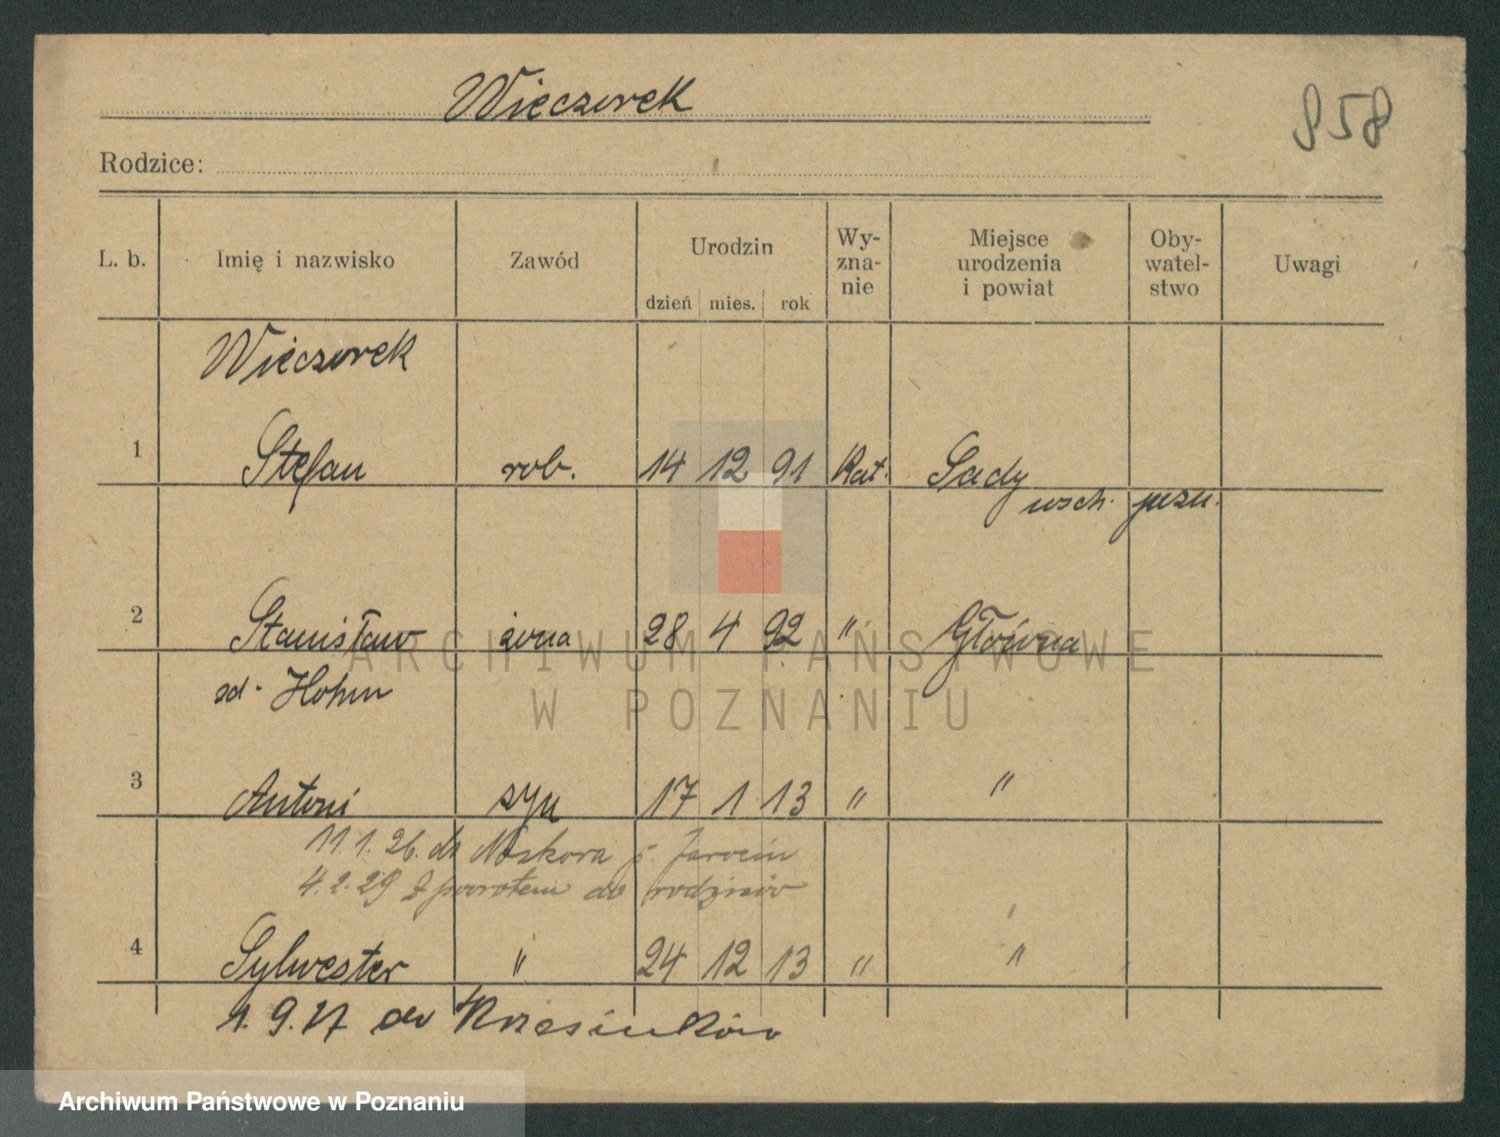 Wieczorek
858
Rodzice:
L. b. Imię i nazwisko Zawód Urodzin dzień mies. rok Wy-zna-nie Miejsce urodzenia i powiat Oby-watel-stwo Uwagi
Wieczorek
1 Stefan rob. 14 12 91 Kat. Sady
wsch.
2 Stanisław żona 28 4 92 " Główna
zd. Hohm
3 Antoni syn 17 1 13 " "
11.1.26. do Noskora p. Jarocin
4.2.29 z powrotem do rodziców
4 Sylwester " 24 12 13 " "
1.9.27 do Krzesinków
ARCHIWUM PAŃSTWOWE
W POZNANIU
Archiwum Państwowe w Poznaniu